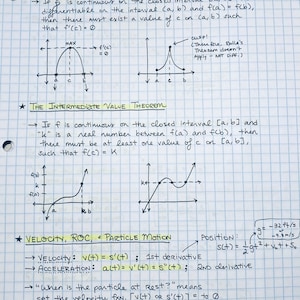 → If f is continuous on the closed interval
differentiable on the interval (a,b) and f(a) = f(b),
then there must exist a value of c on (a,b) such
that f'(c) = 0
MAX
f'(c)
= 0
a c b
(Therefore, Rolle's
Theorem doesn't
a c b
★ THE INTERMEDIATE VALUE THEOREM
→ If f is continuous on the closed interval [a,b] and
"k" is a real number between f(a) and f(b), then
there must be at least one value of c on [a,b],
such that f(c) = k
f(b)
k
f(a)
a b
k
★ VELOCITY, ROC, + PARTICLE MOTION
POSITION:
s(t) = ½gt² + v₀t + s₀
→ VELOCITY: v(t) = s'(t); 1st derivative
→ ACCELERATION: a(t) = v'(t) = s"(t); 2nd derivative
→ "When the particle at rest" means
set the velocity fxn. [v(t) or s'(t)] = to 0